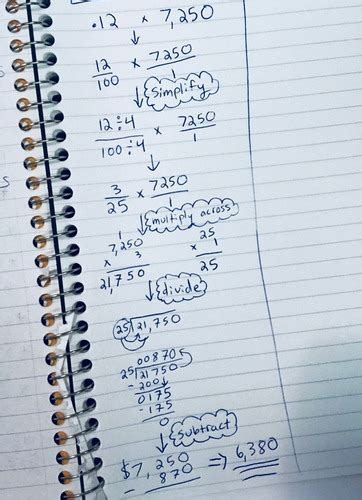 .12 × 7,250
↓
12/100 × 7250/1
↓ Simplify
12÷4/100÷4 × 7250/1
↓
3/25 × 7250/1
↓ multiply across
1
7,250 25
× 3 × 1
21,750 25
↓ divide
25⟌21,750
00870
25⟌21750
-200↓
0175
-175
0
↓ Subtract
$7,250 ⇒ 6,380
- 870